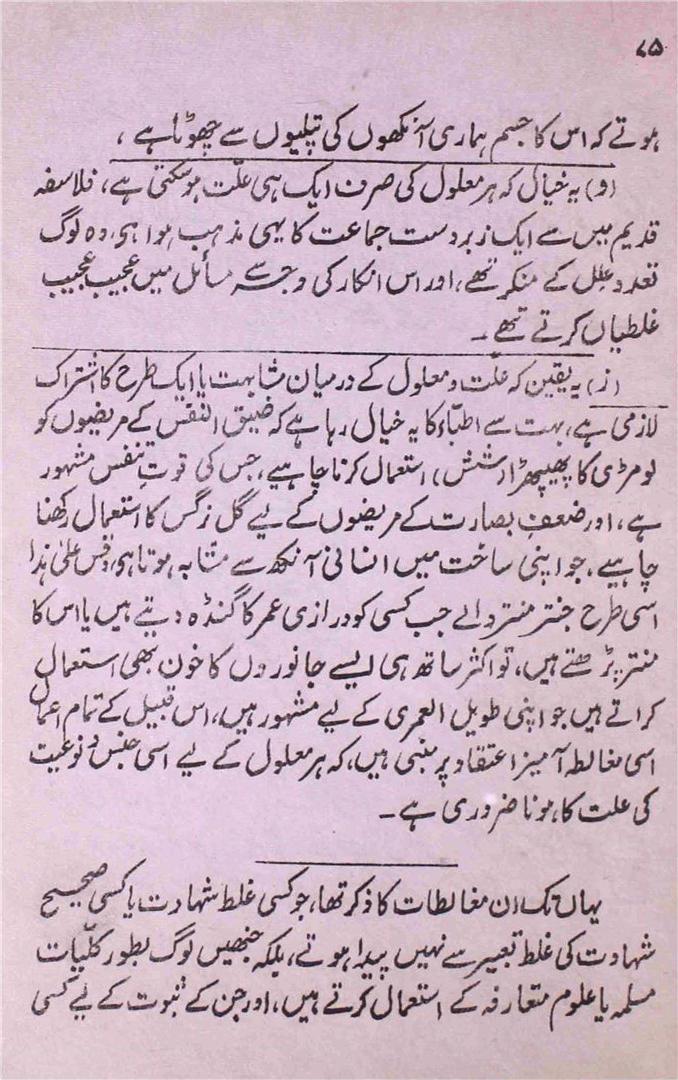 ۸۵
ہوتے کہ اس کا جسم ہماری آنکھوں کی پتلیوں سے چھوٹا ہے ،
(و) یہ خیال کہ ہر معلول کی صرف ایک ہی علّت ہوسکتی ہے، فلاسفہ
قدیم میں سے ایک زبردست جماعت کا یہی مذہب ہوا ہی، وہ لوگ
تعدد علل کے منکر تھے، اور اس انکار کی وجہ سے مسائل میں عجیب عجیب
غلطیاں کرتے تھے۔
(ز) یہ یقین کہ علّت و معلول کے درمیان مشابہت یا ایک طرح کا اشتراک
لازمی ہے، بہت سے اطبّاء کا یہ خیال رہا ہے کہ ضیق النفس کے مریضوں کو
لومڑی کا پھیپھڑا (شش) استعمال کرنا چاہیے، جس کی قوتِ تنفس مشہور
ہے، اور ضعفِ بصارت کے مریضوں کے لیے گل نرگس کا استعمال رکھنا
چاہیے، جو اپنی ساخت میں انسانی آنکھ سے مشابہ ہوتا ہی، وقس علیٰ ہذا
اسی طرح جنتر منتر والے جب کسی کو درازی عمر کا گنڈہ دیتے ہیں یا اس کا
منتر پڑھتے ہیں، تو اکثر ساتھ ہی ایسے جانوروں کا خون بھی استعمال
کراتے ہیں جو اپنی طویل العمری کے لیے مشہور ہیں، اس قبیل کے تمام اعمال
اسی مغالطہ آمیز اعتقاد پر مبنی ہیں، کہ ہر معلول کے لیے اسی جنس و نوعیت
کی علت کا ہونا ضروری ہے۔
یہاں تک ان مغالطات کا ذکر تھا، جو کسی غلط شہادت یا کسی صحیح
شہادت کی غلط تعبیر سے نہیں پیدا ہوتے، بلکہ جنھیں لوگ بطور کلّیات
مسلمہ یا علوم متعارفہ کے استعمال کرتے ہیں، اور جن کے ثبوت کے لیے کسی